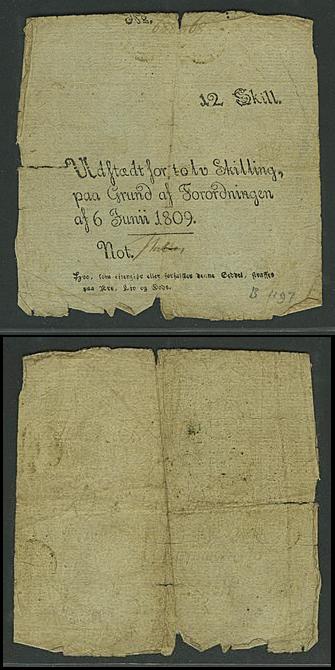 No.
12 Skill.
Udstædt for tolv Skilling,
paa Grund af Forordningen
af 6 Junii 1809.
Not.
Hvo, som eftergiør eller forfalsker denne Seddel, straffes
paa Ære, Liv og Gods.
B 1197